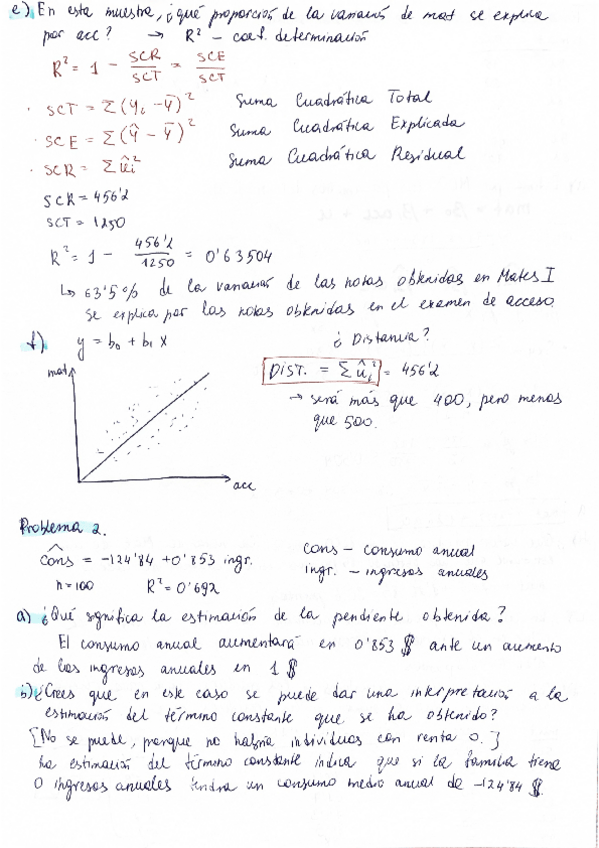 e) En esta muestra, ¿qué proporción de la variación de mat se explica
por acc? → R² - coef. determinación
R² = 1 - SCR/SCT = SCE/SCT
· SCT = Σ(yi - ȳ)² Suma Cuadrática Total
· SCE = Σ(ŷ - ȳ)² Suma Cuadrática Explicada
· SCR = Σûi² Suma Cuadrática Residual
SCR = 456'2
SCT = 1250
R² = 1 - 456'2/1250 = 0'63504
↳ 63'5% de la variación de las notas obtenidas en Mates I
se explica por las notas obtenidas en el examen de acceso.
f) y = b₀ + b₁ x ¿Distancia?
mat
DIST. = Σûi² = 456'2
→ será más que 400, pero menos
que 500.
acc
Problema 2.
ĉons = -124'84 + 0'853 ingr. cons - consumo anual
n=100 R²=0'692 ingr. - ingresos anuales
a) ¿Qué significa la estimación de la pendiente obtenida?
El consumo anual aumentará en 0'853 $ ante un aumento
de los ingresos anuales en 1 $
b) ¿Crees que en este caso se puede dar una interpretación a la
estimación del término constante que se ha obtenido?
[No se puede, porque no habría individuos con renta 0.]
La estimación del término constante indica que si la familia tiene
0 ingresos anuales tendrá un consumo medio anual de -124'84 $.